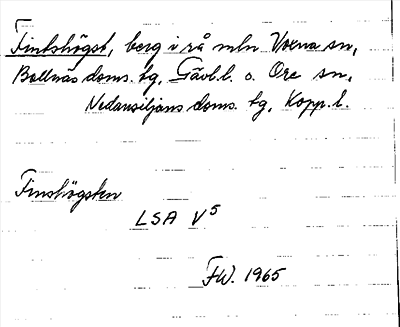 Finkshögst, berg i rå mln Voxna sn,
Bollnäs doms. tg, Gävl.l. o. Ore sn,
Nedansiljans doms. tg, Kopp. l.
Finshögsten
LSA V5
FW. 1965